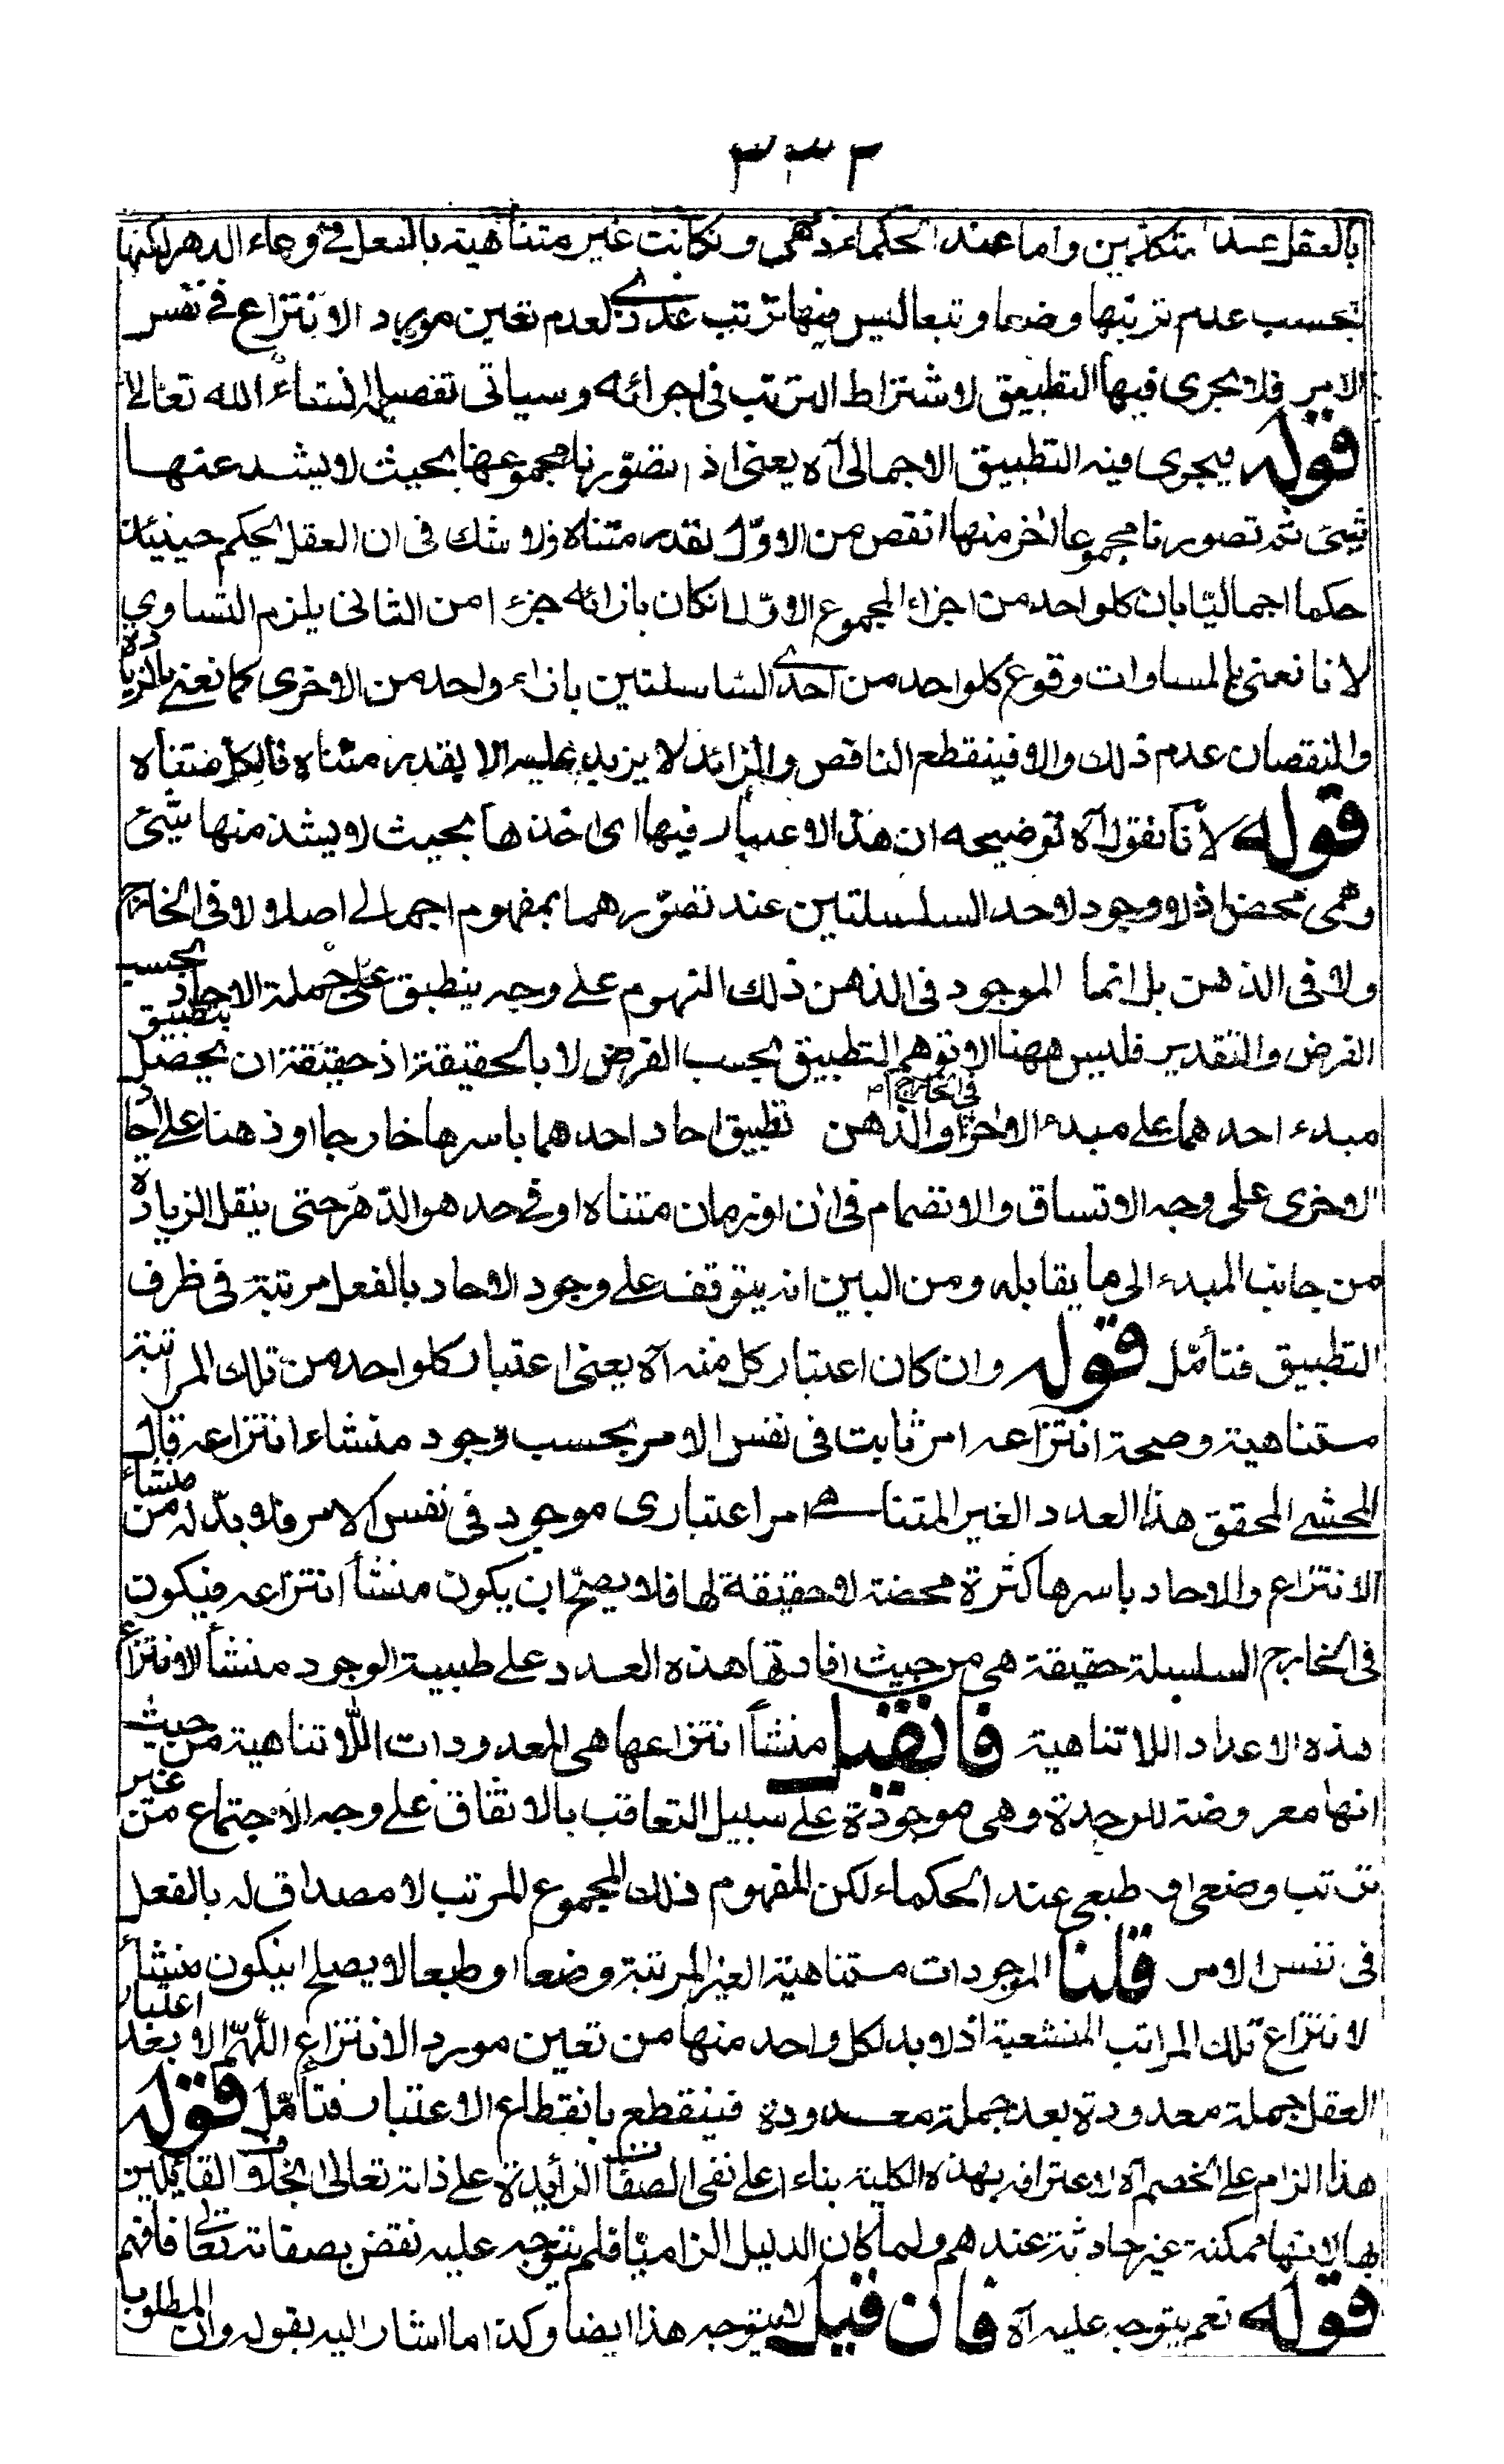 ٢٣٣
بالعقل عند المتكلمين واما عند الحكماء فهى وانكانت غير متناهية بالفعل فى وعاء الدهر لكنها
بحسب عدم ترتبها وضعا وتبعا ليس فيها ترتب عددى لعدم تعين مورد الانتزاع فى نفس
الامر فلا يجرى فيها التطبيق لاشتراط الترتب فى اجرائه وسياتى تفصيله انشاء الله تعالى
قوله فيجرى فيه التطبيق الاجمالى آه يعنى اذا تصورنا مجموعها بحيث لا يشد عنها
شىء ثم تصورنا مجموعا اخر منها انقص من الاول بقدر متناه فلا شك فى ان العقل يحكم حينئذ
حكما اجماليا بان كلواحد من اجزاء المجموع الاول انكان بازائه جزء من الثانى يلزم التساوى
لانا نعنى بالمساوات وقوع كلواحد من احدى السلسلتين بازاء واحد من الاخرى كما نعنى بالزيادة
والنقصان عدم ذلك والا فينقطع الناقص والزائد لا يزيد عليه الا بقدر متناه فالكل متناه
قوله لانا نقول آه توضيحه ان هذا الاعتبار فيها اى اخذها بحيث لا يشذ منها شىئ
وهمى محض اذ لا وجود لاحد السلسلتين عند تصورهما بمفهوم اجمالى اصلا ولا فى الخارج
ولا فى الذهن بل انما الموجود فى الذهن ذلك المفهوم على وجه ينطبق على جملة الاحاد بحسب
الفرض والتقدير فليس ههنا الا توهم التطبيق بحسب الفرض لا بالحقيقة اذ حقيقة ان يحصل بتطبيق
مبدء احدهما على مبدء الاخر فى الخارج او الذهن تطبيق احاد احدهما باسرها خارجا او ذهنا على احاد
الاخرى على وجه الاتساق والانضمام فى ان او زمان متناه او فى حد هو الدهر حتى ينقل الزيادة
من جانب المبدء الى ما يقابله ومن البين انه يتوقف على وجود الاحاد بالفعل مرتبة فى ظرف
التطبيق فتأمل قوله وان كان اعتبار كل منه آه يعنى اعتبار كلواحد من تلك المراتبة
ستناهية وصحة انتزاعه امر ثابت فى نفس الامر بحسب وجود منشاء انتزاعه قال
المحشى المحقق هذا العدد الغير المتناهى امر اعتبارى موجود فى نفس الامر فلا بد له من منشاء
الانتزاع والاحاد باسرها كثرة محضة لا حقيقة لها فلا يصح ان يكون منشأ انتزاعه فيكون
فى الخارج السلسلة حقيقة هى من حيث افادتها هذه العدد على طبيعة الوجود منشأ لانتزاع
هذه الاعداد اللاتناهية فانقيل منشأ انتزاعها هى المعدودات اللاتناهية من حيث
انها معروضة للوحدة وهى موجودة على سبيل التعاقب بالاتفاق على وجه الاجتماع من غير
ترتب وضعى او طبعى عند الحكماء لكن المفهوم ذلك المجموع المرتب لا مصداق له بالفعل
فى نفس الامر قلنا الموجودات ستناهية الغير المرتبة وضعا او طبعا لا يصلح انيكون منشأ
لانتزاع تلك المراتب المنشعبة اذ لا بد لكل واحد منها من تعين مورد الانتزاع اللهم الا بعد اعتبار
العقل جملة معدودة بعد جملة معدودة فينقطع بانقطاع الاعتبار فتأمل قوله
هذا الزام على الخصم آه لاعترافه بهذه الكلية بناء على نفى الصفات الزايدة على ذاته تعالى بخلاف القائلين
بها لانها ممكنة غير حادثة عندهم ولما كان الدليل الزاميا فلم يتوجه عليه نقض بصفاته تعالى فافهم
قوله نعم يتوجه عليه آه فان قيل لا يتوجه هذا ايضا وكذا ما اشار اليه بقوله وان المطلوب